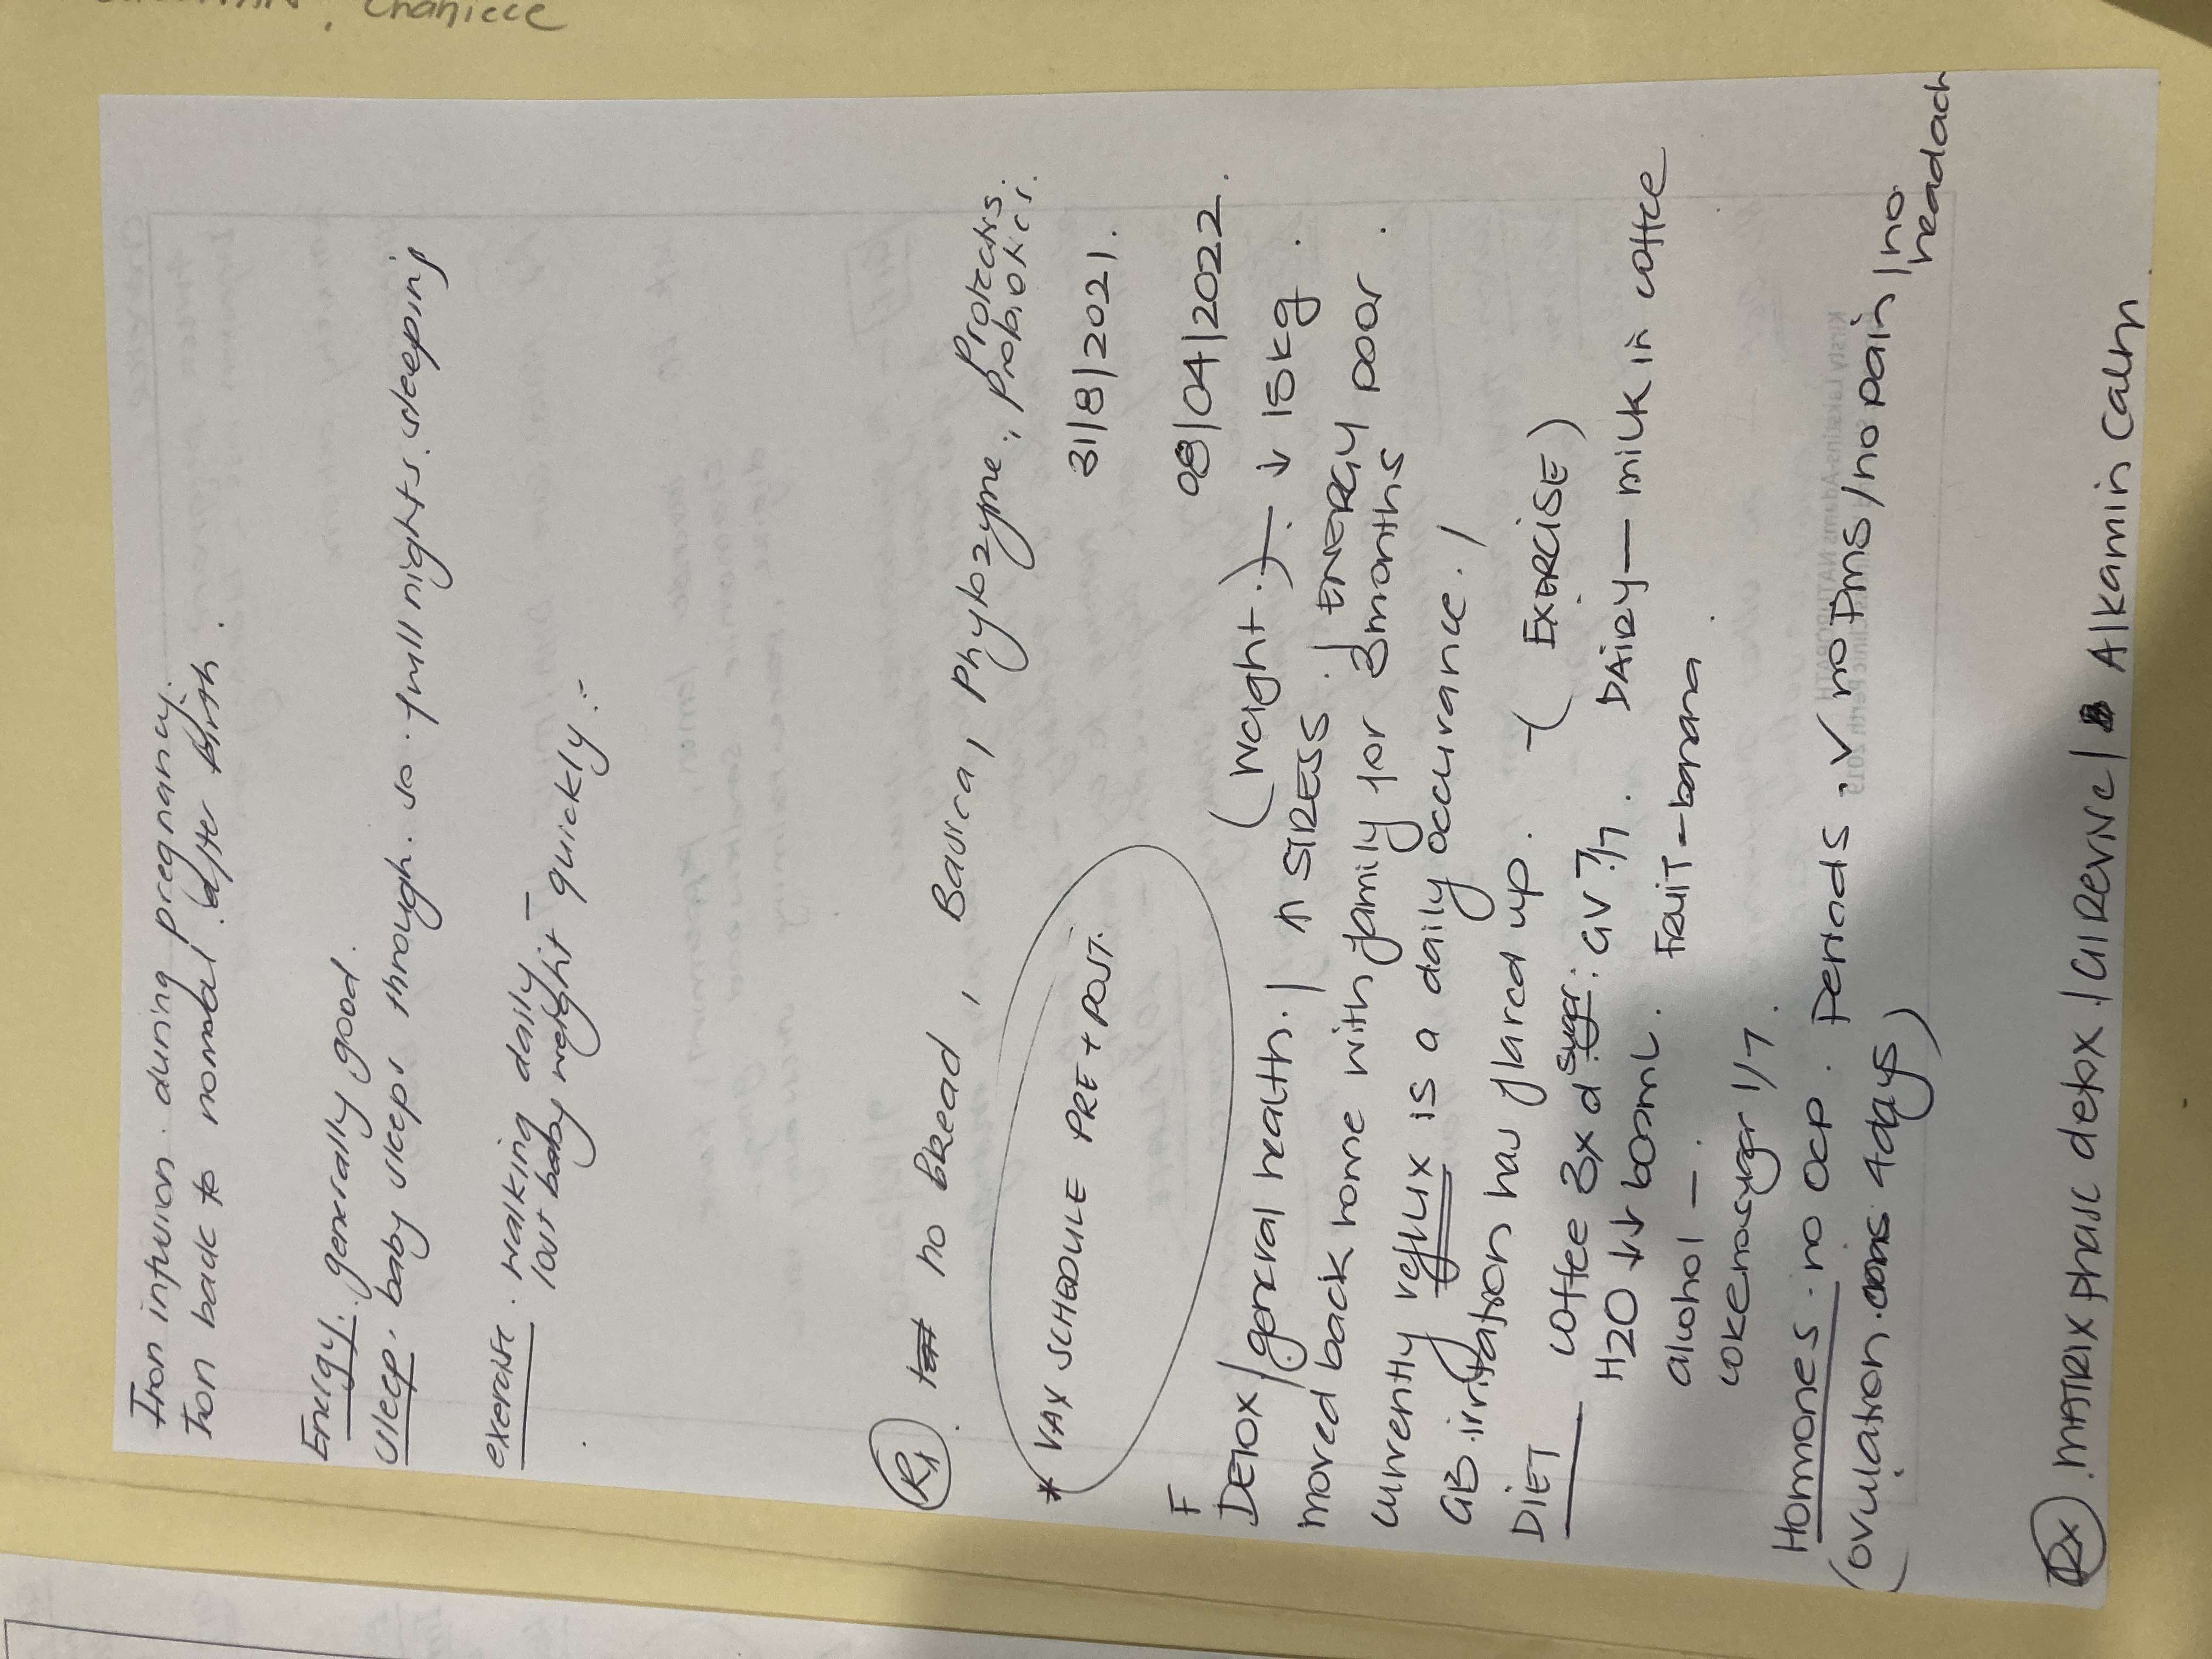 Chaniece
Iron infusion during pregnancy.
Iron back to normal after birth.
Energy. generally good.
Sleep. baby sleeps through. so full nights sleeping
exercise. walking daily –
lost baby weight quickly.
Rx no Bread,
Phytozyme, Protectis.
Probiotics.
* VAX SCHEDULE PRE + POST.
31/8/2021.
F 08/04/2022.
(weight.) → ↓ 15kg.
DETOX/general health. / ↑ STRESS. / ENERGY poor
moved back home with family for 3 months.
currently reflux is a daily occurance. /
GB irritation has flared up. – (EXERCISE)
DIET coffee 3x d sugar: GV 7/7. DAIRY – milk in coffee
H2O ↓↓ 600mL. FRUIT – banana.
alcohol –.
coke no sugar 1/7.
Hormones. no OCP. Periods. ✓ no PMS / no pain / no headach
(ovulation. 4 days)
Rx. MATRIX phase detox. / GI REVIVE / Alkamin calm